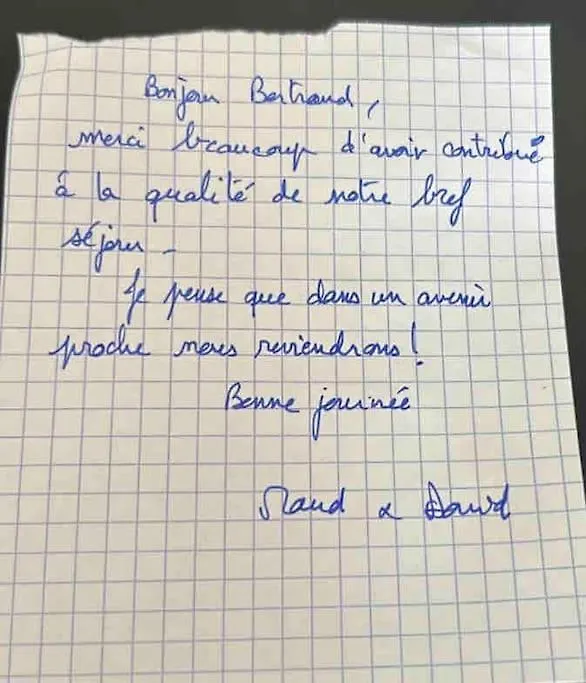 Bonjour Bertrand,
merci beaucoup d'avoir contribué
à la qualité de notre bref
séjour -
Je pense que dans un avenir
proche nous reviendrons !
Bonne journée
Maud & David